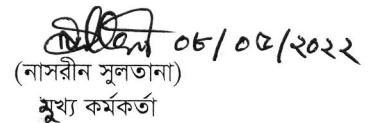 ০৮/০৫/২০২২
(নাসরীন সুলতানা)
মুখ্য কর্মকর্তা